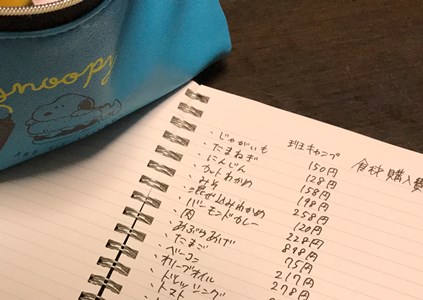 snoopy
班キャンプ 食材購入費
・じゃがいも 150円
・たまねぎ 128円
・にんじん 158円
・カットわかめ 198円
・みそ 258円
・混ぜ込みわかめ 120円
・バーモンドカレー 228円
・肉 898円
・あぶらあげ 75円
・たまご 217円
・ベーコン 278円
・オリーブオイル
・ドレッシング
・トマト